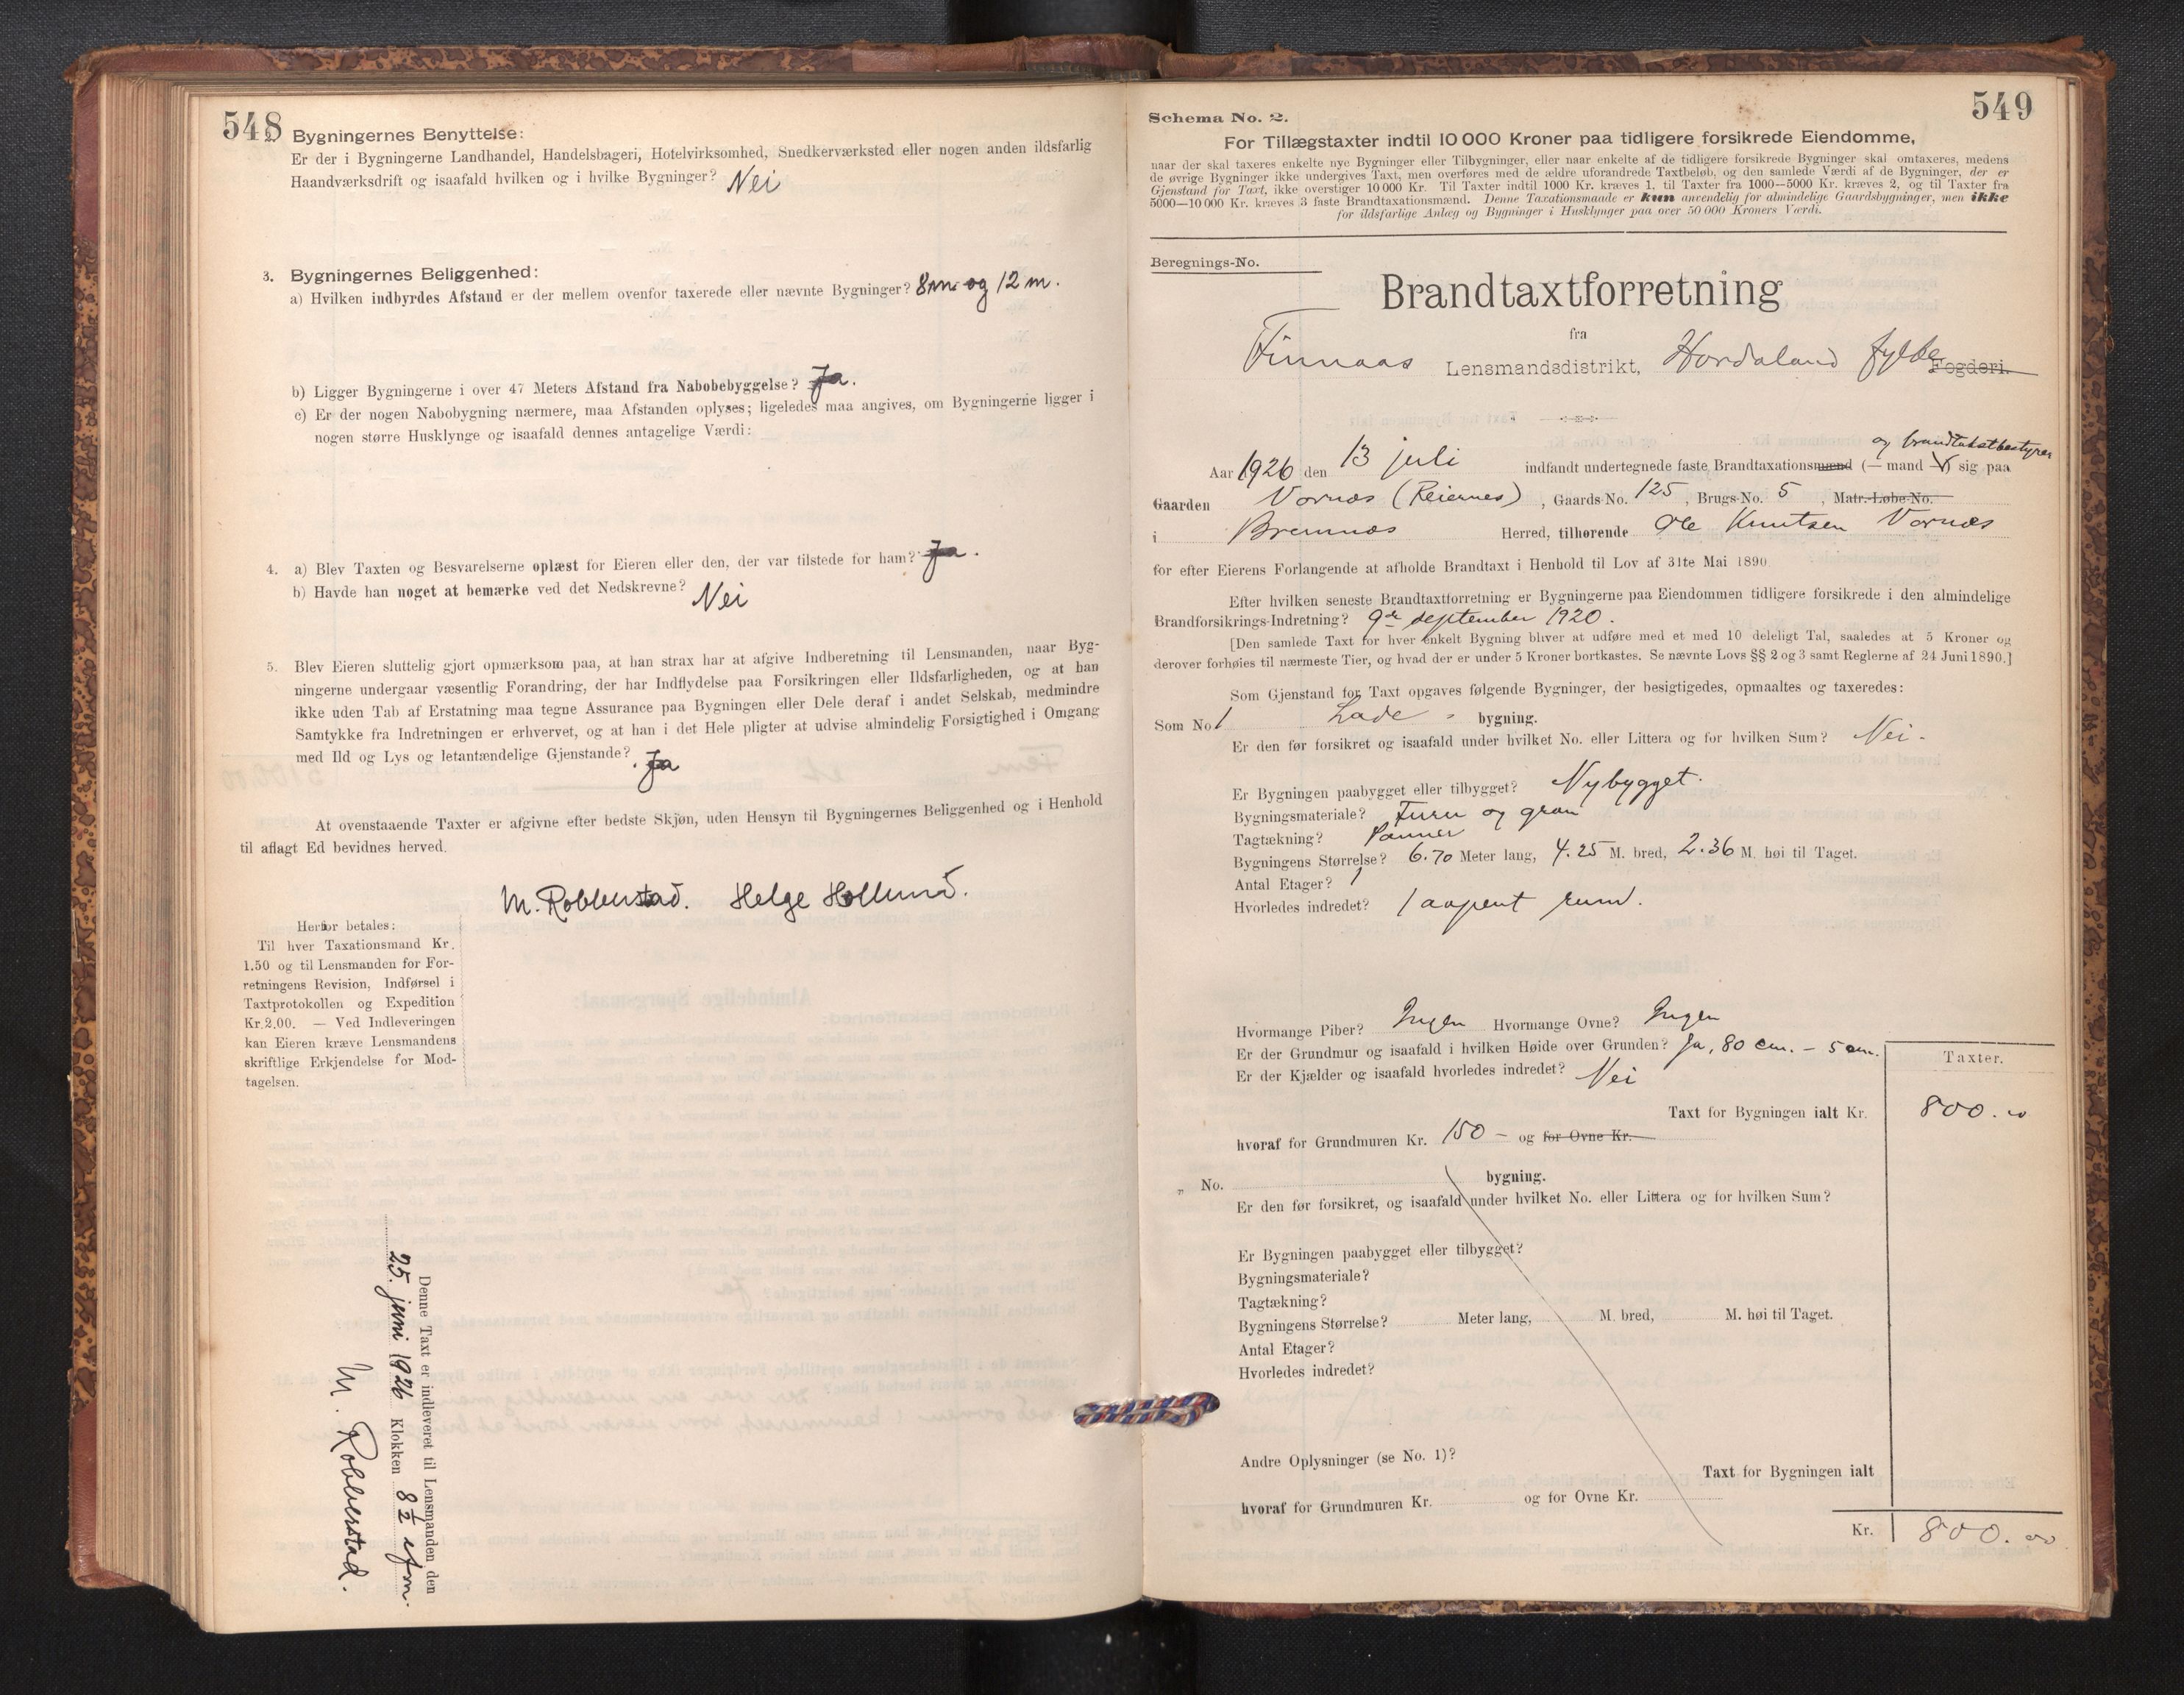 548
Bygningernes Benyttelse:
Er der i Bygningerne Landhandel, Handelsbageri, Hotelvirksomhed, Snedkerværksted eller nogen anden ildsfarlig
Haandværksdrift og isaafald hvilken og i hvilke Bygninger? Nei
3. Bygningernes Beliggenhed:
a) Hvilken indbyrdes Afstand er der mellem ovenfor taxerede eller nævnte Bygninger? 8 m. og 12 m.
b) Ligger Bygningerne i over 47 Meters Afstand fra Nabobebyggelse? Ja.
c) Er der nogen Nabobygning nærmere, maa Afstanden oplyses; ligeledes maa angives, om Bygningerne ligger i
nogen større Husklynge og isaafald dennes antagelige Værdi:
4. a) Blev Taxten og Besvarelserne oplæst for Eieren eller den, der var tilstede for ham? Ja.
b) Havde han noget at bemærke ved det Nedskrevne? Nei
5. Blev Eieren sluttelig gjort opmærksom paa, at han strax har at afgive Indberetning til Lensmanden, naar Byg-
ningerne undergaar væsentlig Forandring, der har Indflydelse paa Forsikringen eller Ildsfarligheden, og at han
ikke uden Tab af Erstatning maa tegne Assurance paa Bygningen eller Dele deraf i andet Selskab, medmindre
Samtykke fra Indretningen er erhvervet, og at han i det Hele pligter at udvise almindelig Forsigtighed i Omgang
med Ild og Lys og letantændelige Gjenstande? Ja
At ovenstaaende Taxter er afgivne efter bedste Skjøn, uden Hensyn til Bygningernes Beliggenhed og i Henhold
til aflagt Ed bevidnes herved.
M. Robberstad. Helge Hollund.
Herfor betales:
Til hver Taxationsmand Kr.
1.50 og til Lensmanden for For-
retningens Revision, Indførsel i
Taxtprotokollen og Expedition
Kr. 2.00. — Ved Indleveringen
kan Eieren kræve Lensmandens
skriftlige Erkjendelse for Mod-
tagelsen.
Denne Taxt er indleveret til Lensmanden den
25. juni 1926 Klokken 8 ½ efm.
M. Robberstad.
549
Schema No. 2.
For Tillægstaxter indtil 10 000 Kroner paa tidligere forsikrede Eiendomme,
naar der skal taxeres enkelte nye Bygninger eller Tilbygninger, eller naar enkelte af de tidligere forsikrede Bygninger skal omtaxeres, medens
de øvrige Bygninger ikke undergives Taxt, men overføres med de ældre uforandrede Taxtbeløb, og den samlede Værdi af de Bygninger, der er
Gjenstand for Taxt, ikke overstiger 10 000 Kr. Til Taxter indtil 1000 Kr. kræves 1, til Taxter fra 1000—5000 Kr. kræves 2, og til Taxter fra
5000—10 000 Kr. kræves 3 faste Brandtaxationsmænd. Denne Taxationsmaade er kun anvendelig for almindelige Gaardsbygninger, men ikke
for ildsfarlige Anlæg og Bygninger i Husklynger paa over 50 000 Kroners Værdi.
Beregnings-No.
Brandtaxtforretning
fra
Finnaas Lensmandsdistrikt, Hordaland fylke Fogderi.
og brandtakstbestyrer
Aar 1926 den 13 juli indfandt undertegnede faste Brandtaxationsmænd (— mand —) sig paa
Gaarden Vornes (Reiernes), Gaards-No. 125, Brugs-No. 5, Matr.-Løbe-No.
i Bremnes Herred, tilhørende Ole Knutsen Vornes
for efter Eierens Forlangende at afholde Brandtaxt i Henhold til Lov af 31te Mai 1890
Efter hvilken seneste Brandtaxtforretning er Bygningerne paa Eiendommen tidligere forsikrede i den almindelige
Brandforsikrings-Indretning? 9de september 1920.
[Den samlede Taxt for hver enkelt Bygning bliver at udføre med et med 10 deleligt Tal, saaledes at 5 Kroner og
derover forhøies til nærmeste Tier, og hvad der er under 5 Kroner bortkastes. Se nævnte Lovs §§ 2 og 3 samt Reglerne af 24 Juni 1890.]
Som Gjenstand for Taxt opgaves følgende Bygninger, der besigtigedes, opmaaltes og taxeredes:
Som No 1 Lade - bygning.
Er den før forsikret og isaafald under hvilket No. eller Littera og for hvilken Sum? Nei -
Er Bygningen paabygget eller tilbygget? Nybygget.
Bygningsmateriale? Furu og gran
Tagtækning? Panner
Bygningens Størrelse? 6.70 Meter lang, 4.25 M. bred, 2.36 M. høi til Taget.
Antal Etager? 1
Hvorledes indredet? 1 aapent rum.
Hvormange Piber? Ingen Hvormange Ovne? Ingen
Er der Grundmur og isaafald i hvilken Høide over Grunden? Ja, 80 cm. — 5 cm.
Er der Kjælder og isaafald hvorledes indredet? Nei
Taxter.
Taxt for Bygningen ialt Kr. 800.00
hvoraf for Grundmuren Kr. 150 — og for Ovne Kr.
„ No. bygning.
Er den før forsikret, og isaafald under hvilket No. eller Littera og for hvilken Sum?
Er Bygningen paabygget eller tilbygget?
Bygningsmateriale?
Tagtækning?
Bygningens Størrelse? Meter lang, M. bred, M. høi til Taget.
Antal Etager?
Hvorledes indredet?
Andre Oplysninger (se No. 1)?
Taxt for Bygningen ialt
hvoraf for Grundmuren Kr. og for Ovne Kr.
Kr. 800.00